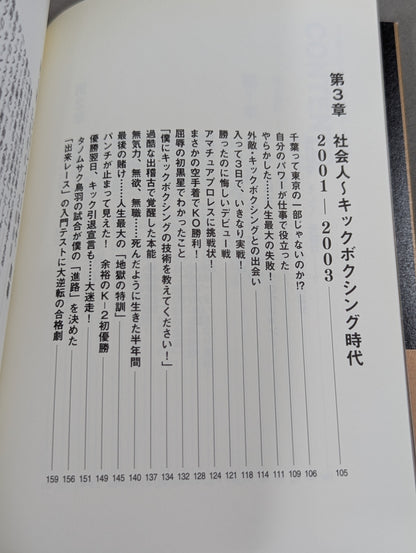 第3章 社会人～キックボクシング時代
2001―2003 105
千葉って東京の一部じゃないのか!? 106
自分のパワーが仕事で役立った 109
やらかした……人生最大の失敗! 111
外敵・キックボクシングとの出会い 114
入って3日で、いきなり実戦! 118
勝ったのに悔しいデビュー戦 121
アマチュアプロレスに挑戦状! 124
まさかの空手着でKO勝利! 128
屈辱の初黒星でわかったこと 132
「僕にキックボクシングの技術を教えてください!」 134
過酷な出稽古で覚醒した本能 137
無気力、無欲、無職……死んだように生きた半年間 140
最後の賭け……人生最大の「地獄の特訓」 145
パンチが止まって見えた! 余裕のK−2初優勝 149
優勝翌日、キック引退宣言も……大迷走! 151
タノムサク鳥羽の試合が僕の「進路」を決めた 156
「出来レース」の入門テストに大逆転の合格劇 159